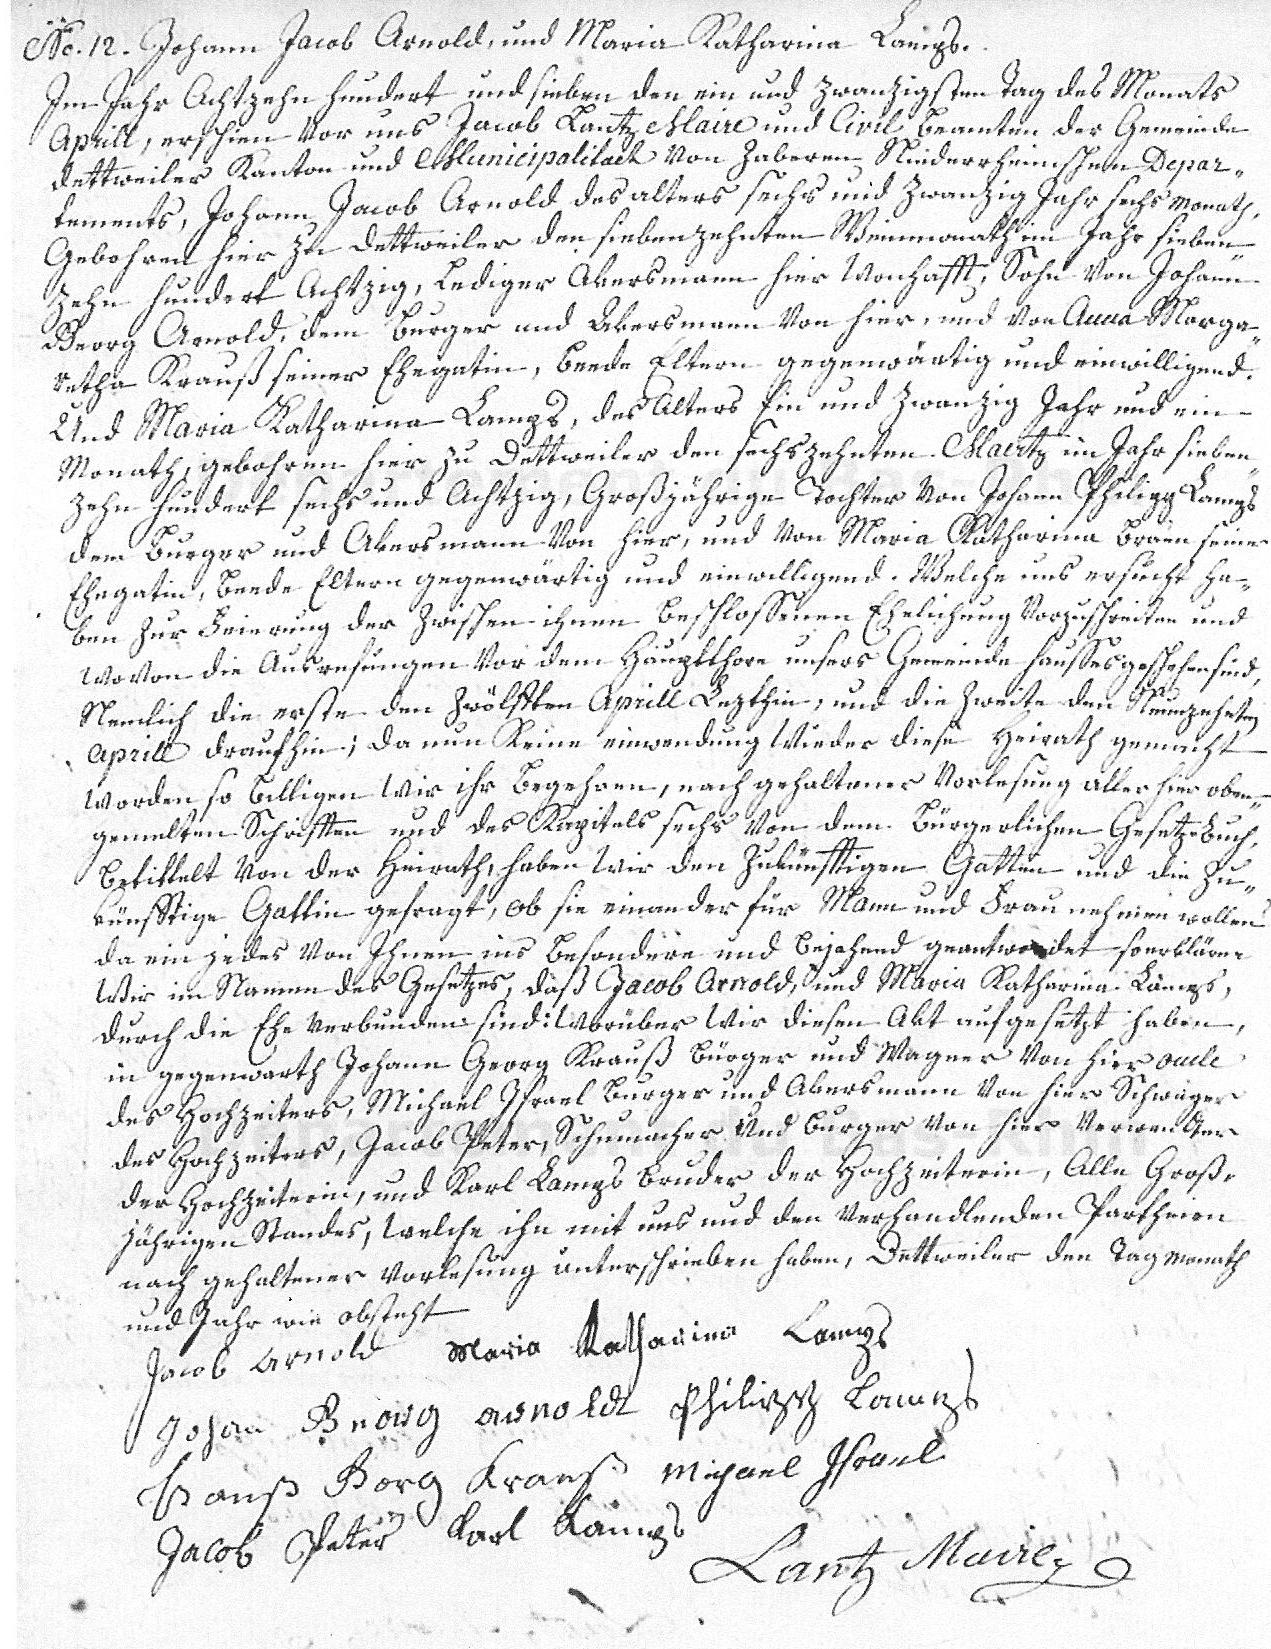 No. 12. Johann Jacob Arnold, und Maria Katharina Lamps.
Im Jahr Achtzehn hundert und sieben den ein und zwanzigsten Tag des Monats
Aprill, erschien vor uns Jacob Lantz Maire und Civil beamten der Gemeinde
dettweiler Kanton und Municipalitaet von Zaberen Niederrheinischen Depar-
tements, Johann Jacob Arnold des alters sechs und zwanzig Jahr sechs Monath,
Gebohren hier zu dettweiler den siebenzehnten Weinmonath im Jahr sieben
zehn hundert Achtzig, Lediger Akersmann hier wonhafft, Sohn von Johann
Georg Arnold, dem burger und Akersmann von hier, und von Anna Marga-
retha Krauß seiner Ehegatin, beede Eltern gegenwärtig und einwilligend.
Und Maria Katharina Lamps, des Alters Ein und zwanzig Jahr und ein
Monath, gebohren hier zu Dettweiler den sechszehnten Maertz im Jahr sieben
zehn hundert sechs und Achtzig, Großjährige Tochter von Johann Philipp Lamps
dem burger und Akersmann von hier, und von Maria Katharina Braun seiner
Ehegatin, beede Eltern gegenwärtig und einwilligend. Welche uns ersucht ha-
ben zur Feierung der zwischen ihnen beschlossenen Ehelichung vorzuschreiten und
wovon die Ausrufungen vor dem Hauptthore unsers Gemeinde hausses geschehen sind,
Nemlich die erste den zwölften Aprill Lezthin, und die zweite den Neunzehnten
Aprill draufhin; da nun Keine einwendung wieder diese Heirath gemacht
worden so billigen wir ihr begehren, nach gehaltener Vorlesung aller hier oben-
gemelten Schriften und des Kapitels sechs von dem bürgerlichen Gesetzbuch,
betittelt von der Heirath, haben wir den zukünfftigen Gatten und die zu-
künfftige Gattin gefragt, ob sie einander für Mann und Frau nehmen wollen
da ein jedes von Ihnen ins besondere und bejahend geantwordet so erkläre
wir im Namen des Gesetzes, daß Jacob Arnold, und Maria Katharina Lamps,
durch die Ehe verbunden sind: worüber wir diesen Akt aufgesetzt haben,
in gegenwarth Johann Georg Krauß bürger und Wagner von hier oncle
des Hochzeiters, Michael Israel burger und Akersmann von hier Schwager
des Hochzeiters, Jacob Peter, Schumacher und burger von hier Verwandter
der Hochzeiterin, und Karl Lamps bruder der Hochzeiterin, Alle Groß-
jährigen Standes, welche ihn mit uns und den verhandlenden Partheien
nach gehaltener vorlesung unterschrieben haben, Dettweiler den Tag Monath
und Jahr wie obsteht
Jacob Arnold Maria Katharina Lamps
Johan Georg Arnoldt Philipp Lamps
Hanß Georg Krauß Michael Israel
Jacob Peter Karl Lamps
Lantz Maire